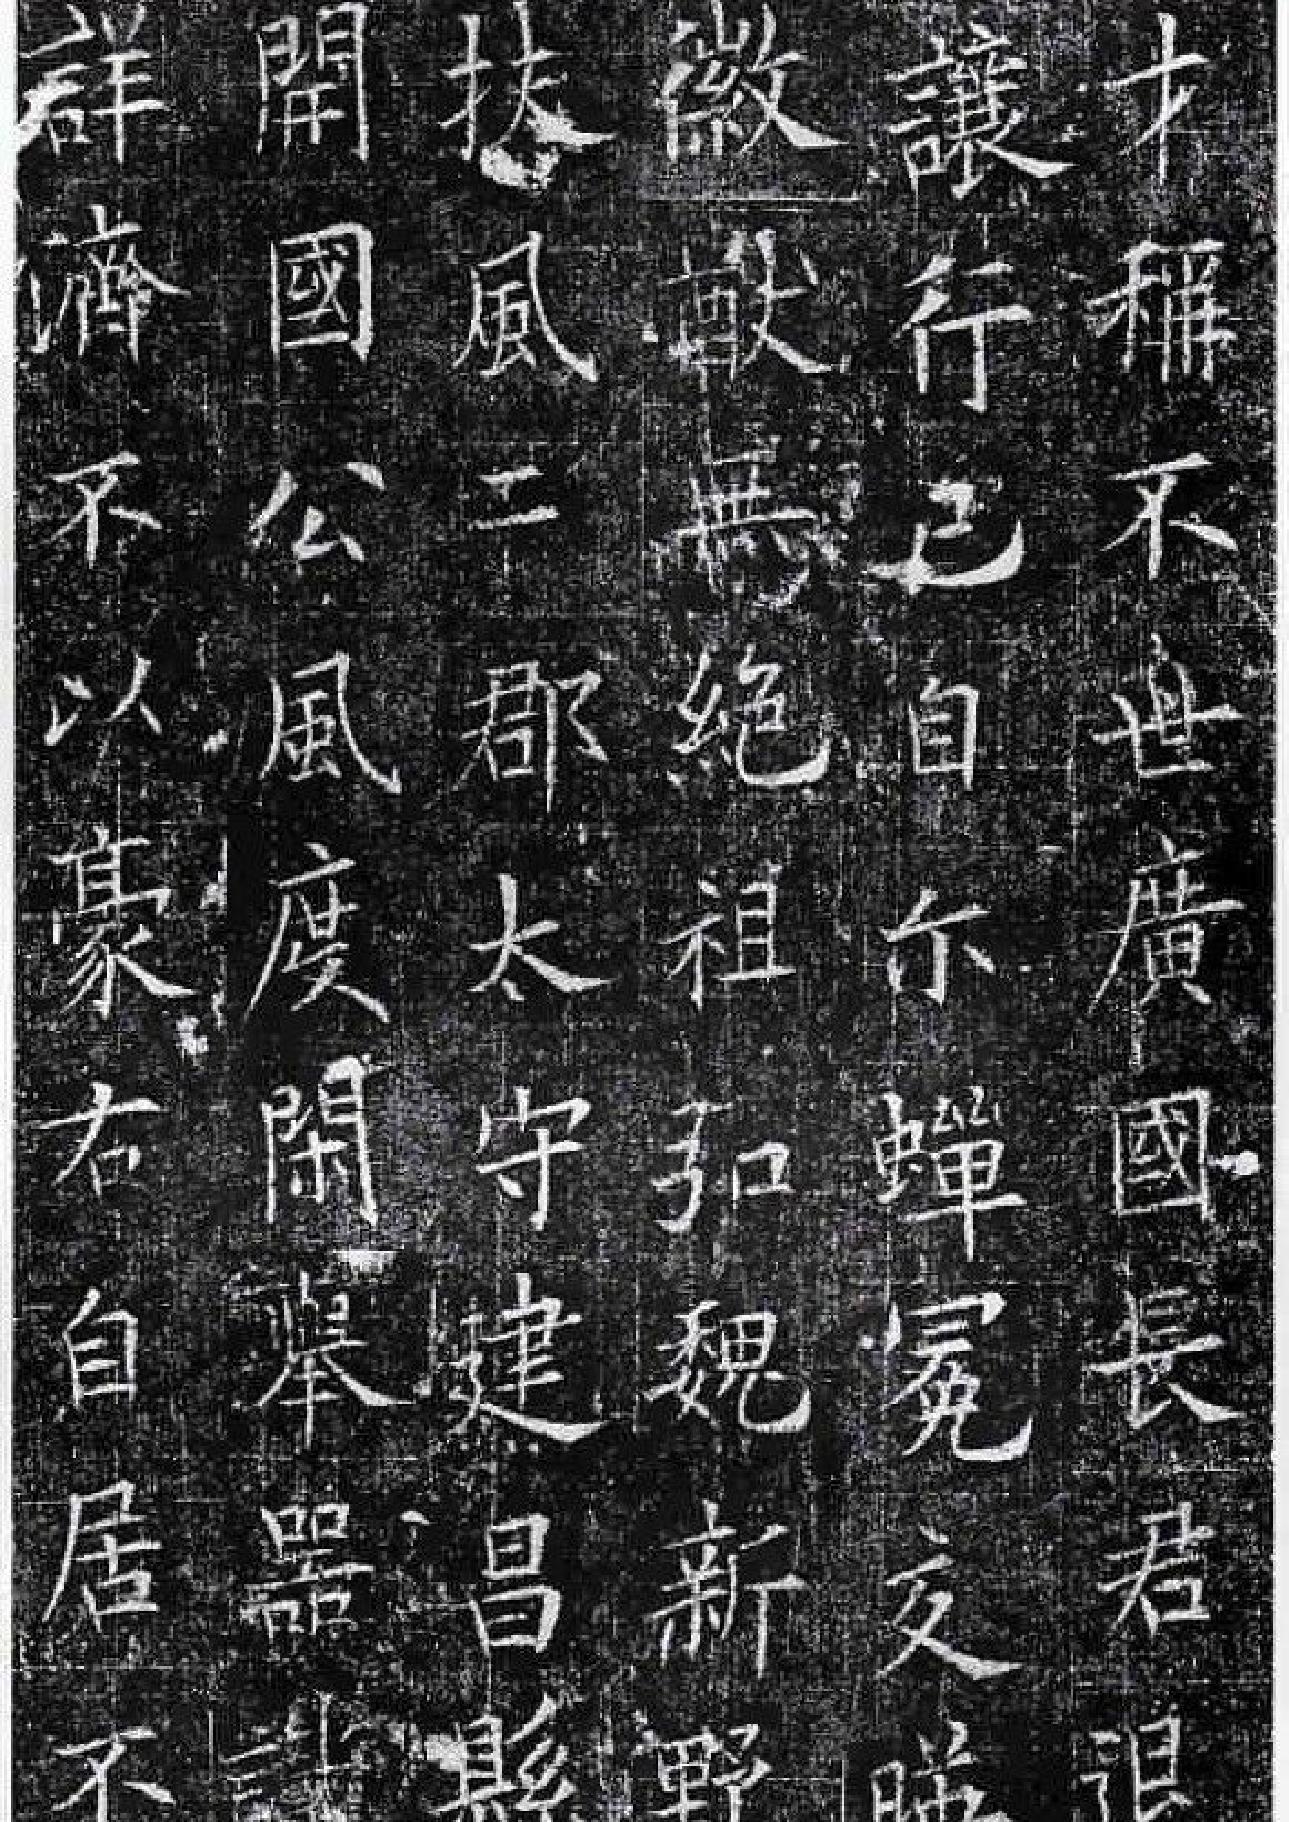 才稱不世廣國長君退
讓行己自尒蟬冕交暎
徽猷無絶祖弘魏新野
扶風二郡太守建昌縣
開國公風度閑舉器
群濟不以豪右自居不